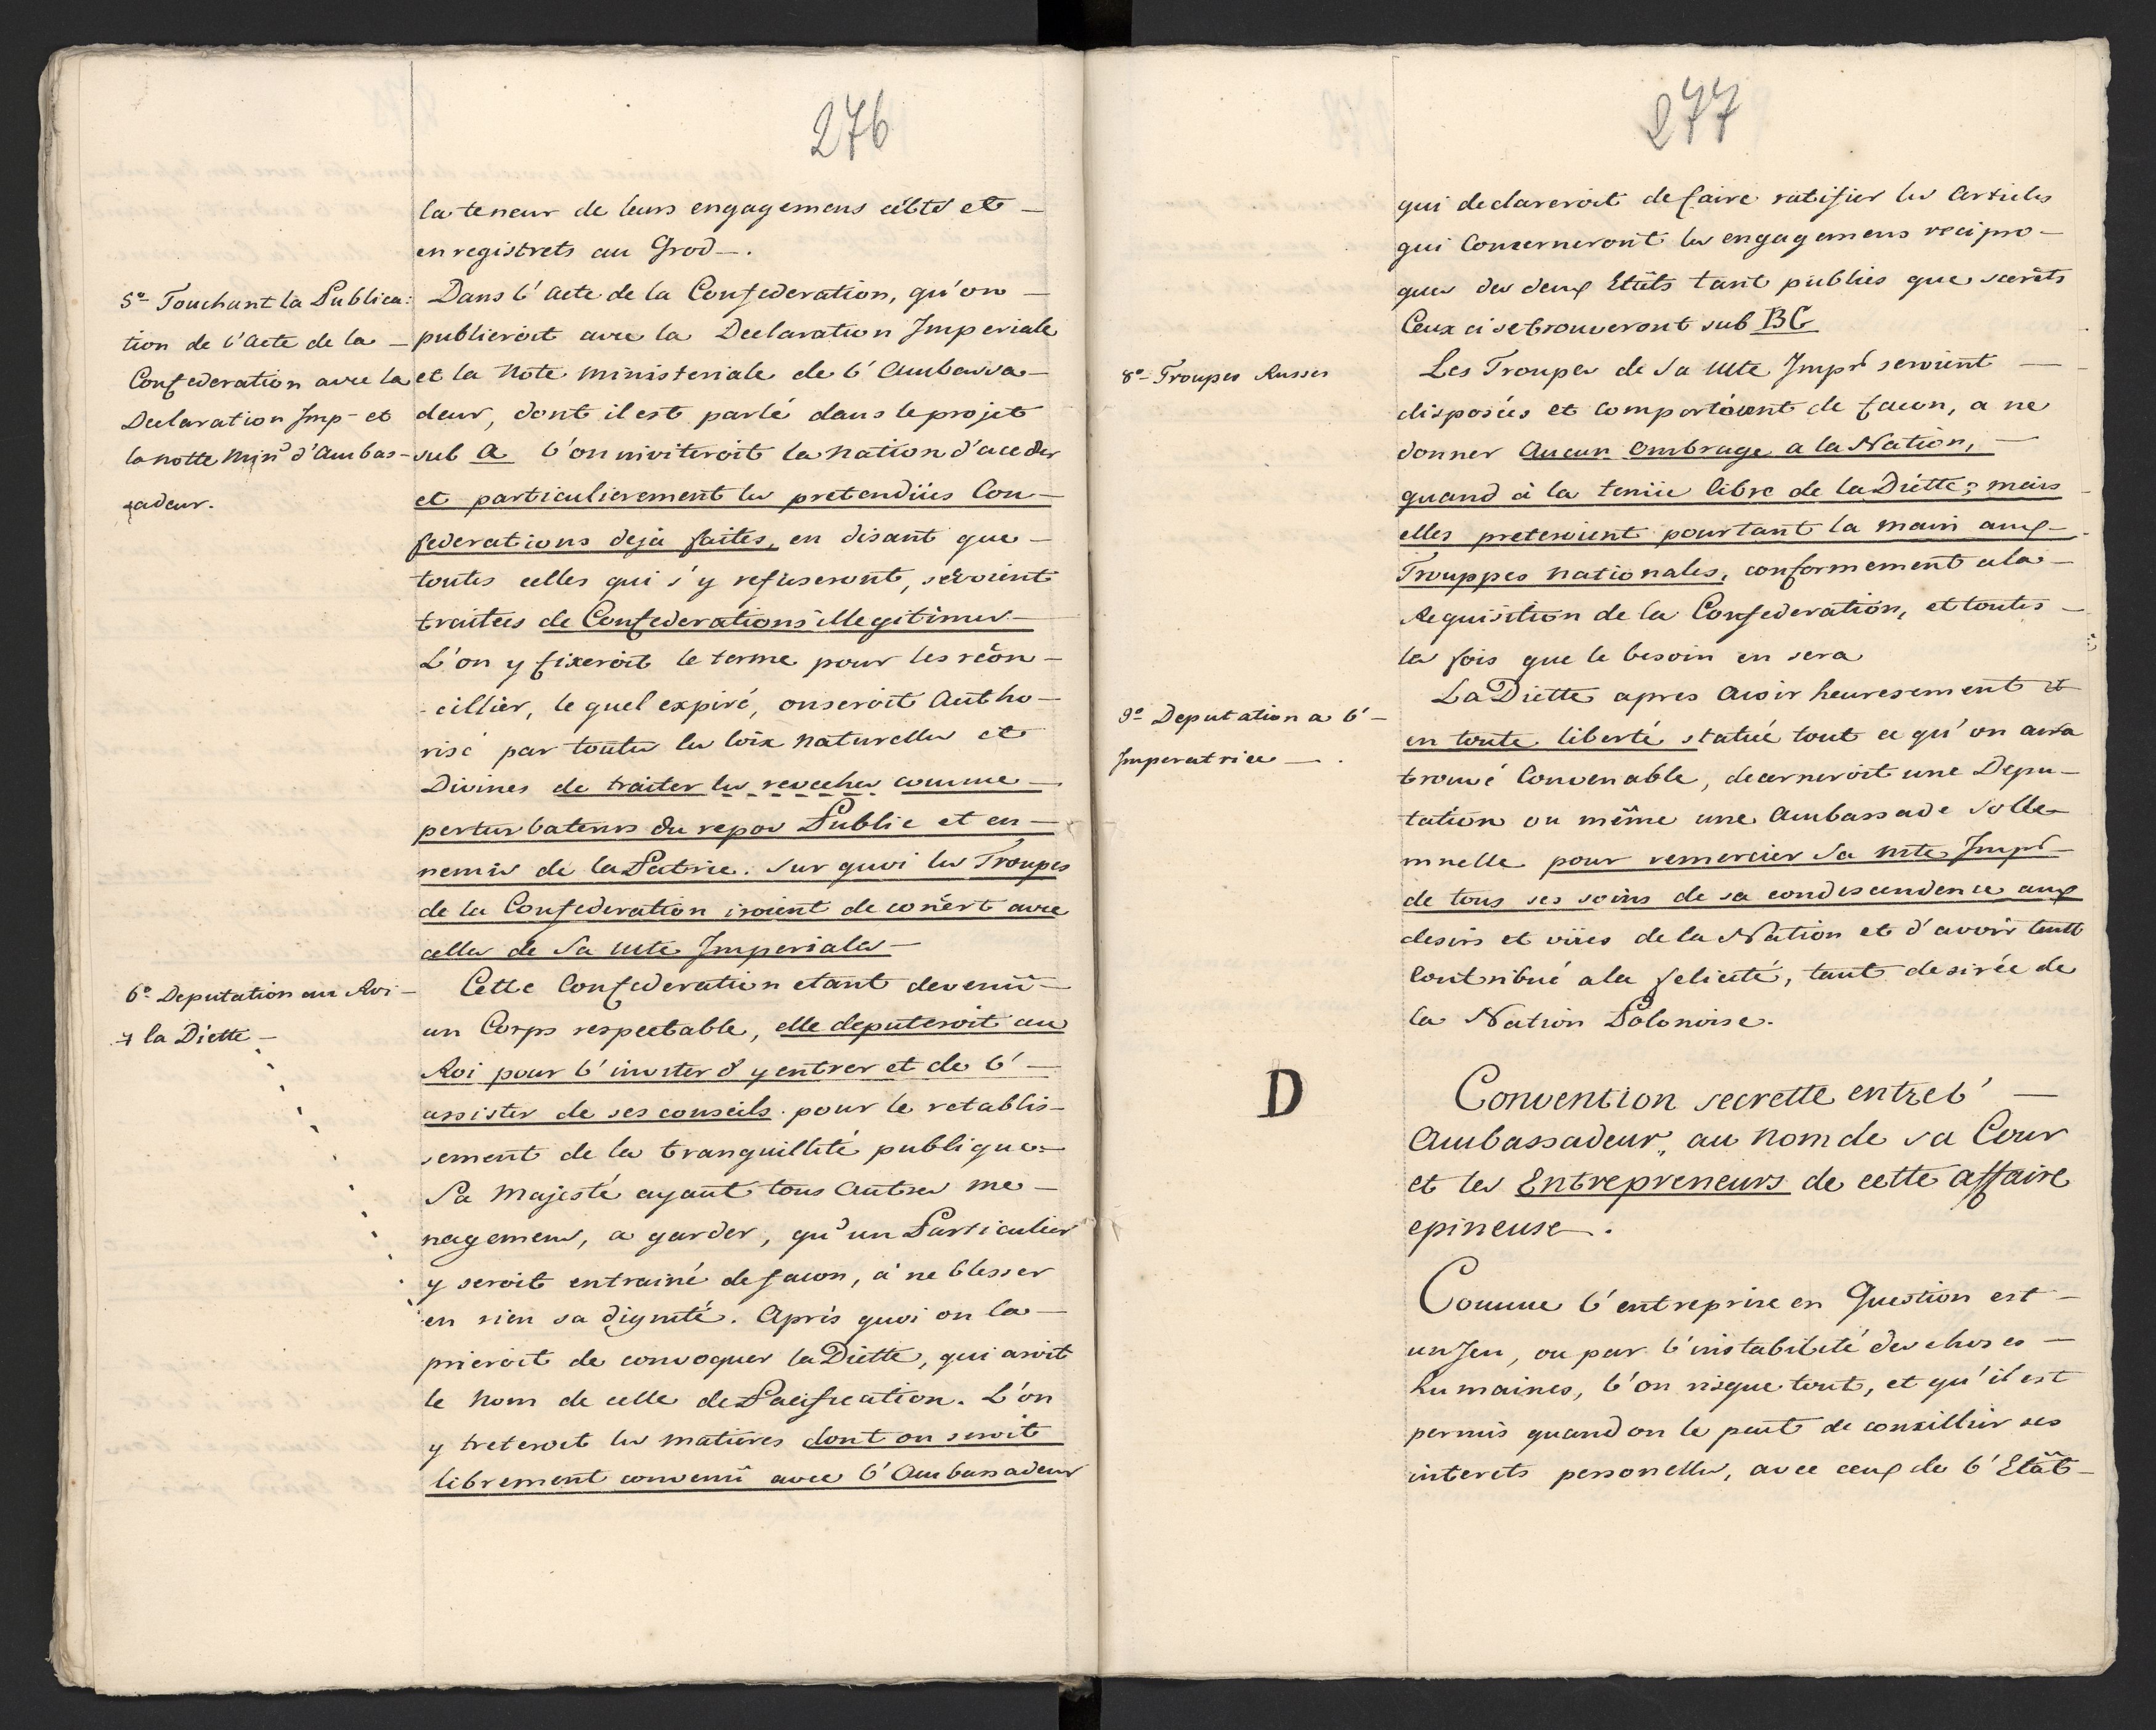 276
la teneur de leurs engagemens cités et —
enregistrets au Grod —.
5º Touchant la Publica:
tion de l'Acte de la —
Confederation avec la
Declaration Imp- et
la notte Min d'Ambas-
sadeur.
Dans l'Acte de la Confederation, qu'on —
publieroit avec la Declaration Imperiale
et la Note ministeriale de l'Ambassa-
deur, dont il est parlé dans le projet
sub A l'on inviteroit la nation d'acceder
et particulierement les pretendüés Con-
federations deja faites, en disant que —
toutes celles qui s'y refuseront, seroient
traitées de Confederations illegitimes —
L'on y fixeroit le terme pour les récon-
-cillier, lequel expiré, on seroit Autho-
risé par toutes les loix naturelles et
Divines de traiter les reveches comme —
perturbateurs du repos Public et en-
nemis de la Patrie. Sur quoi les Troupes
de la Confederation iroient de concert avec
celles de Sa Mte Imperiales —
6º Deputation au Roi —
+ la Diette —
Cette Confederation etant devenüe
un Corps respectable, elle deputeroit au
Roi pour l'inviter d'y entrer et de l' —
assister de ses conseils pour le retablis-
sement de la tranquillité publique.
Sa Majesté ayant tous Autres me-
nagemens, a garder, qu'un Particulier
y seroit entrainé de facon, à ne blesser
en rien sa dignité. Aprés quoi on la —
prieroit de convoquer la Diette, qui aroit
le Nom de celle de Pacification. L'on
y treteroit les matieres dont on seroit
librement convenü avec l'Ambassadeur
277
qui declareroit de faire ratifier les Articles
qui Concerneront les engagemens recipro-
ques des deux Etäts tant publics que secréts
Ceux ci se trouveront sub BC
8º Troupes Russes
Les Troupes de Sa Mte Imple seroient —
disposées et comporteront de facon, a ne
donner Aucun Ombrage a la Nation, —
quand à la tenüe libre de la Diette; mais
elles preteroient pourtant la main aux
Trouppes Nationales, conformement a la —
Requisition de la Confederation, et toutes —
les fois que le besoin en sera
9º Deputation a l' —
Imperatrice — .
La Diette apres Avoir heuresement et
en toute liberté statué tout ce qu'on aura
trouvé Convenable, decerneroit une Depu-
tation ou même une Ambassade Solle-
mnelle pour remercier Sa Mte Imple
de tous ses soins de sa condescendence aux
desirs et vües de la Nation et d'avoir tant
Contribué a la felicité, tant desirée de
la Nation Polonoise.
D
Convention secrette entre l' —
Ambassadeur, au Nom de sa Cour
et les Entrepreneurs de cette affaire
epineuse .
Comme l'entreprise en Question est —
un Jeu, ou par l'instabilité des choses —
humaines, l'on risque tout, et qu'il est
permis quand on le peut de consillier ses
interets personelles, avec ceux de l'Etät —